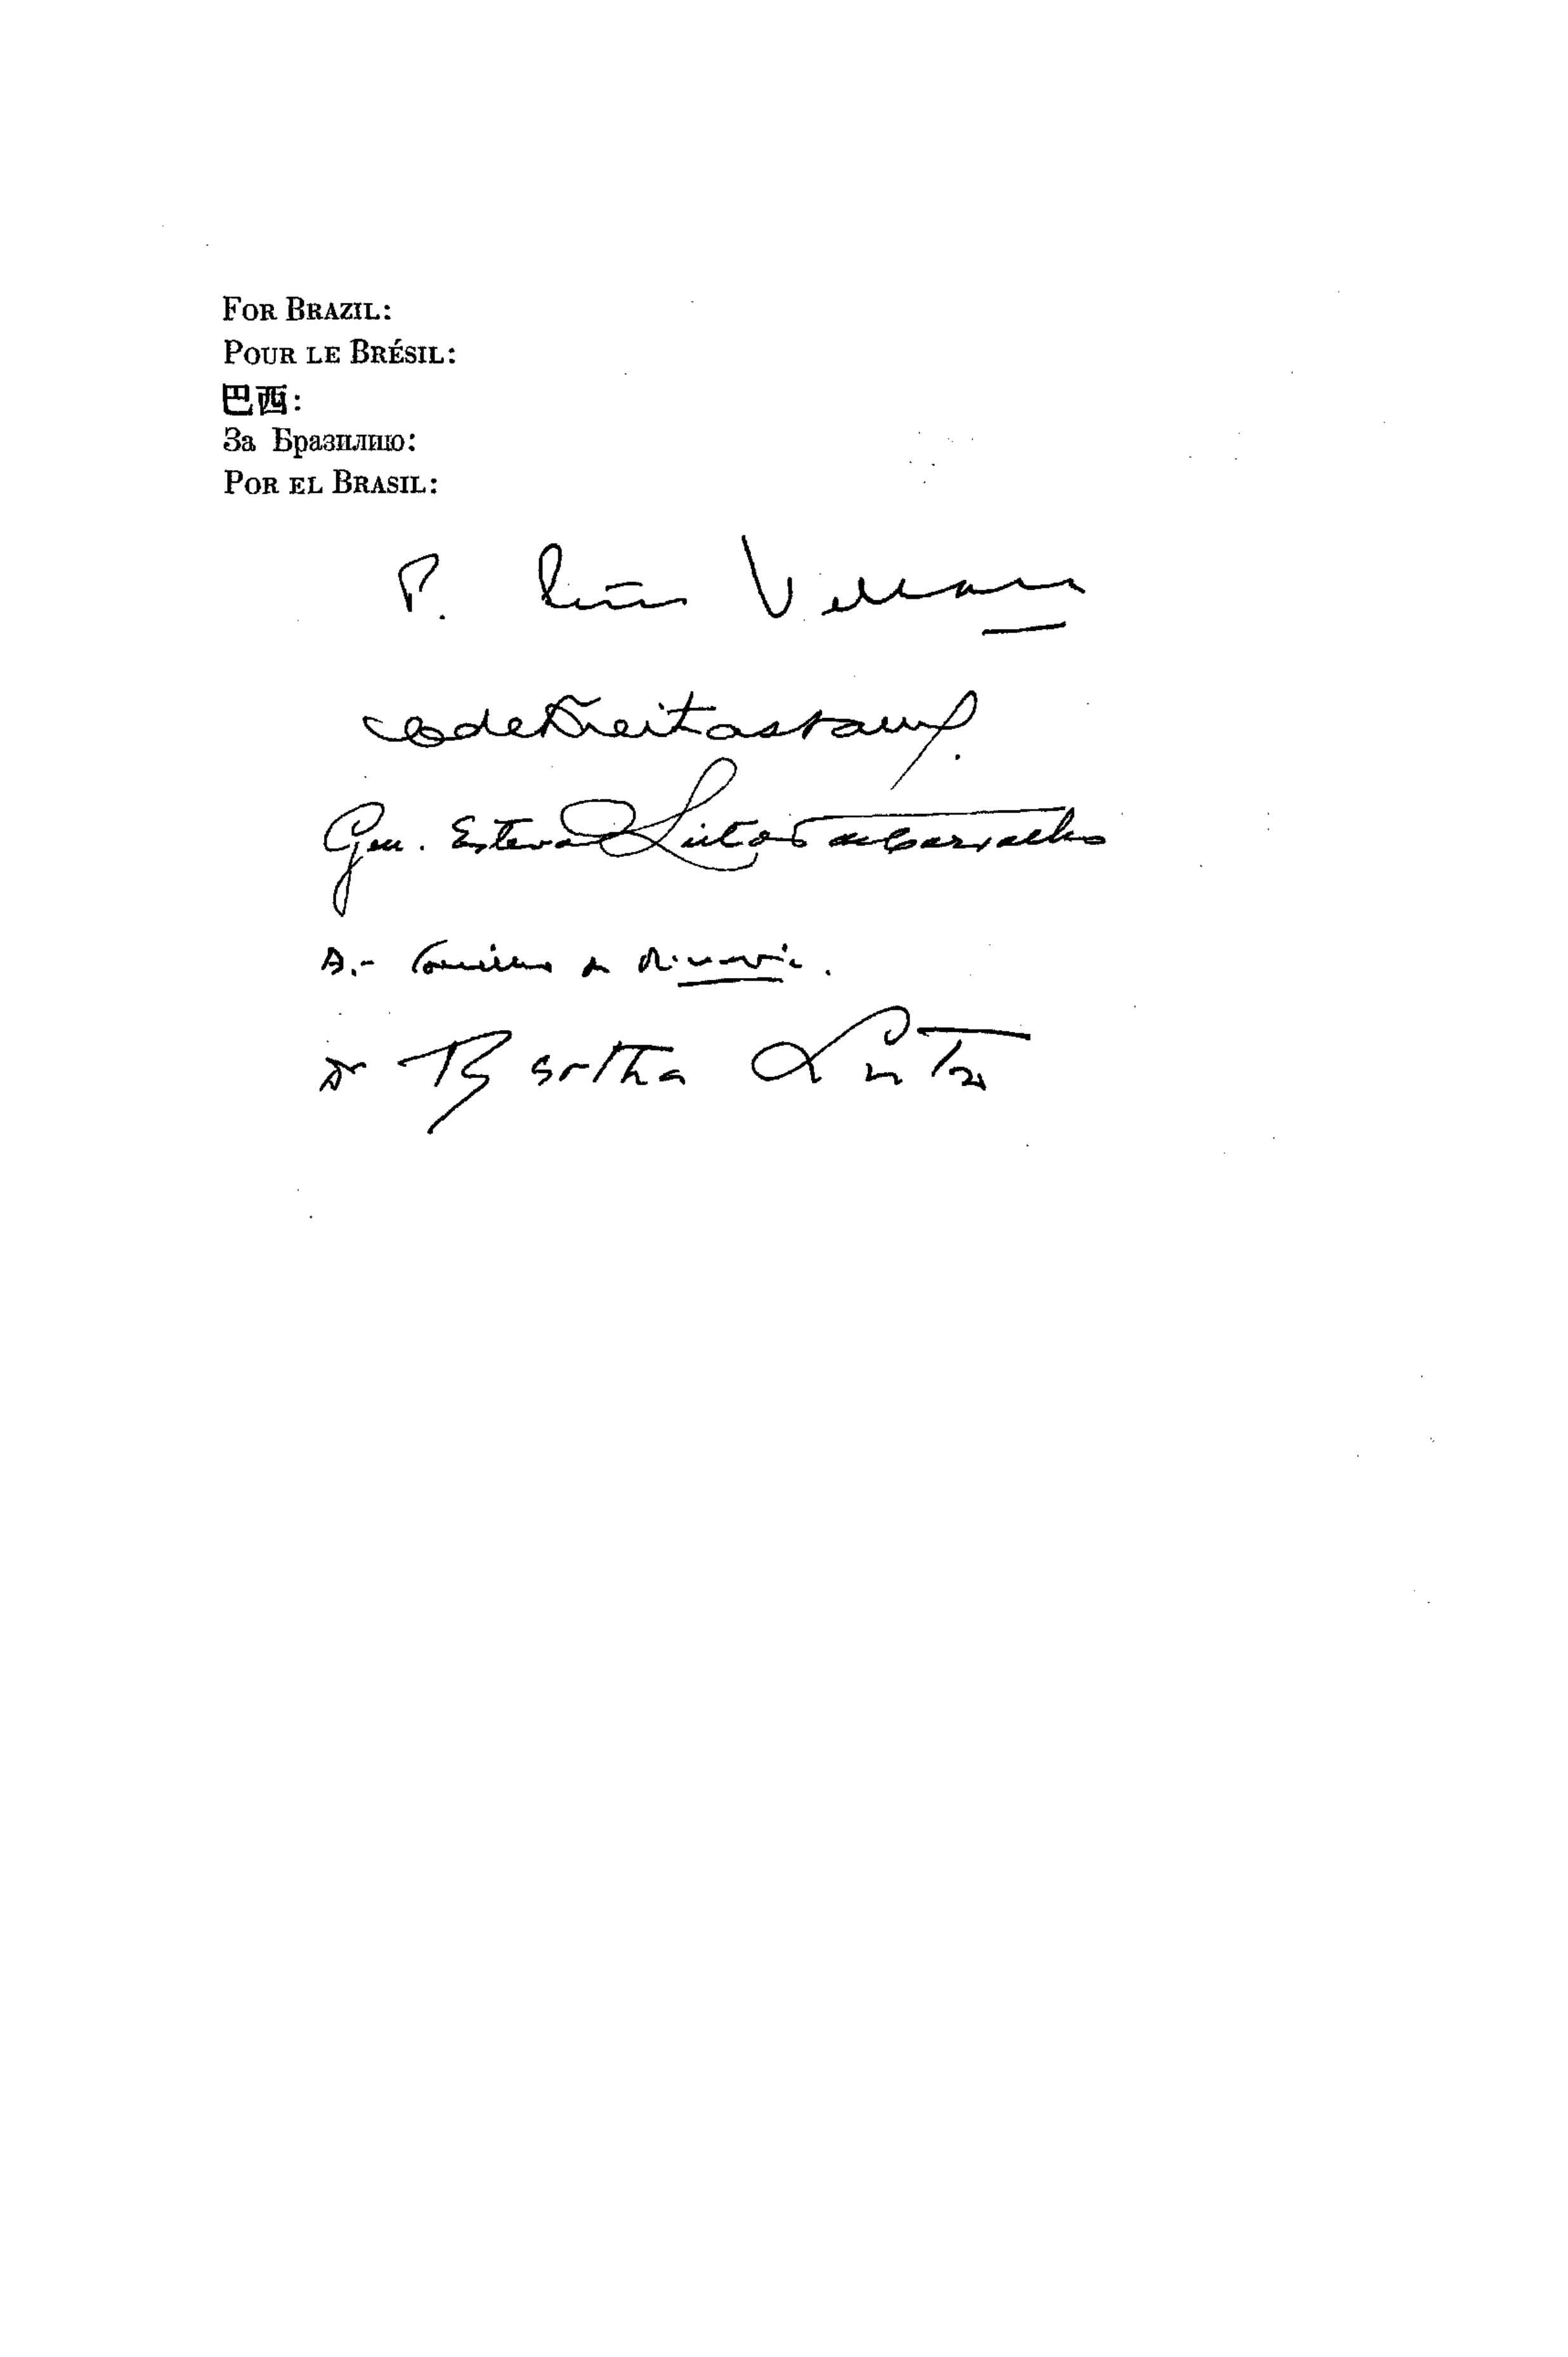 For Brazil:
Pour le Brésil:
巴西:
За Бразилию:
Por el Brasil:
P. Leão Velloso
C de Freitas Valle
Gen. Estevão Leitão de Carvalho
A.-
Dr Bertha Lutz